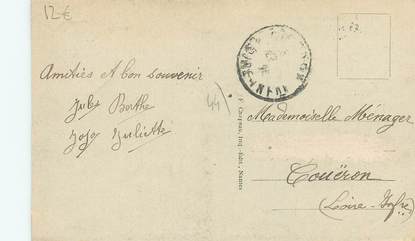 12€
Amitiés & bon souvenir
Jules Berthe
Jojo Juliette
44
F. Chapeau, Imp.-Edit., Nantes
Mademoiselle Ménager
Couëron
(Loire-Infre)